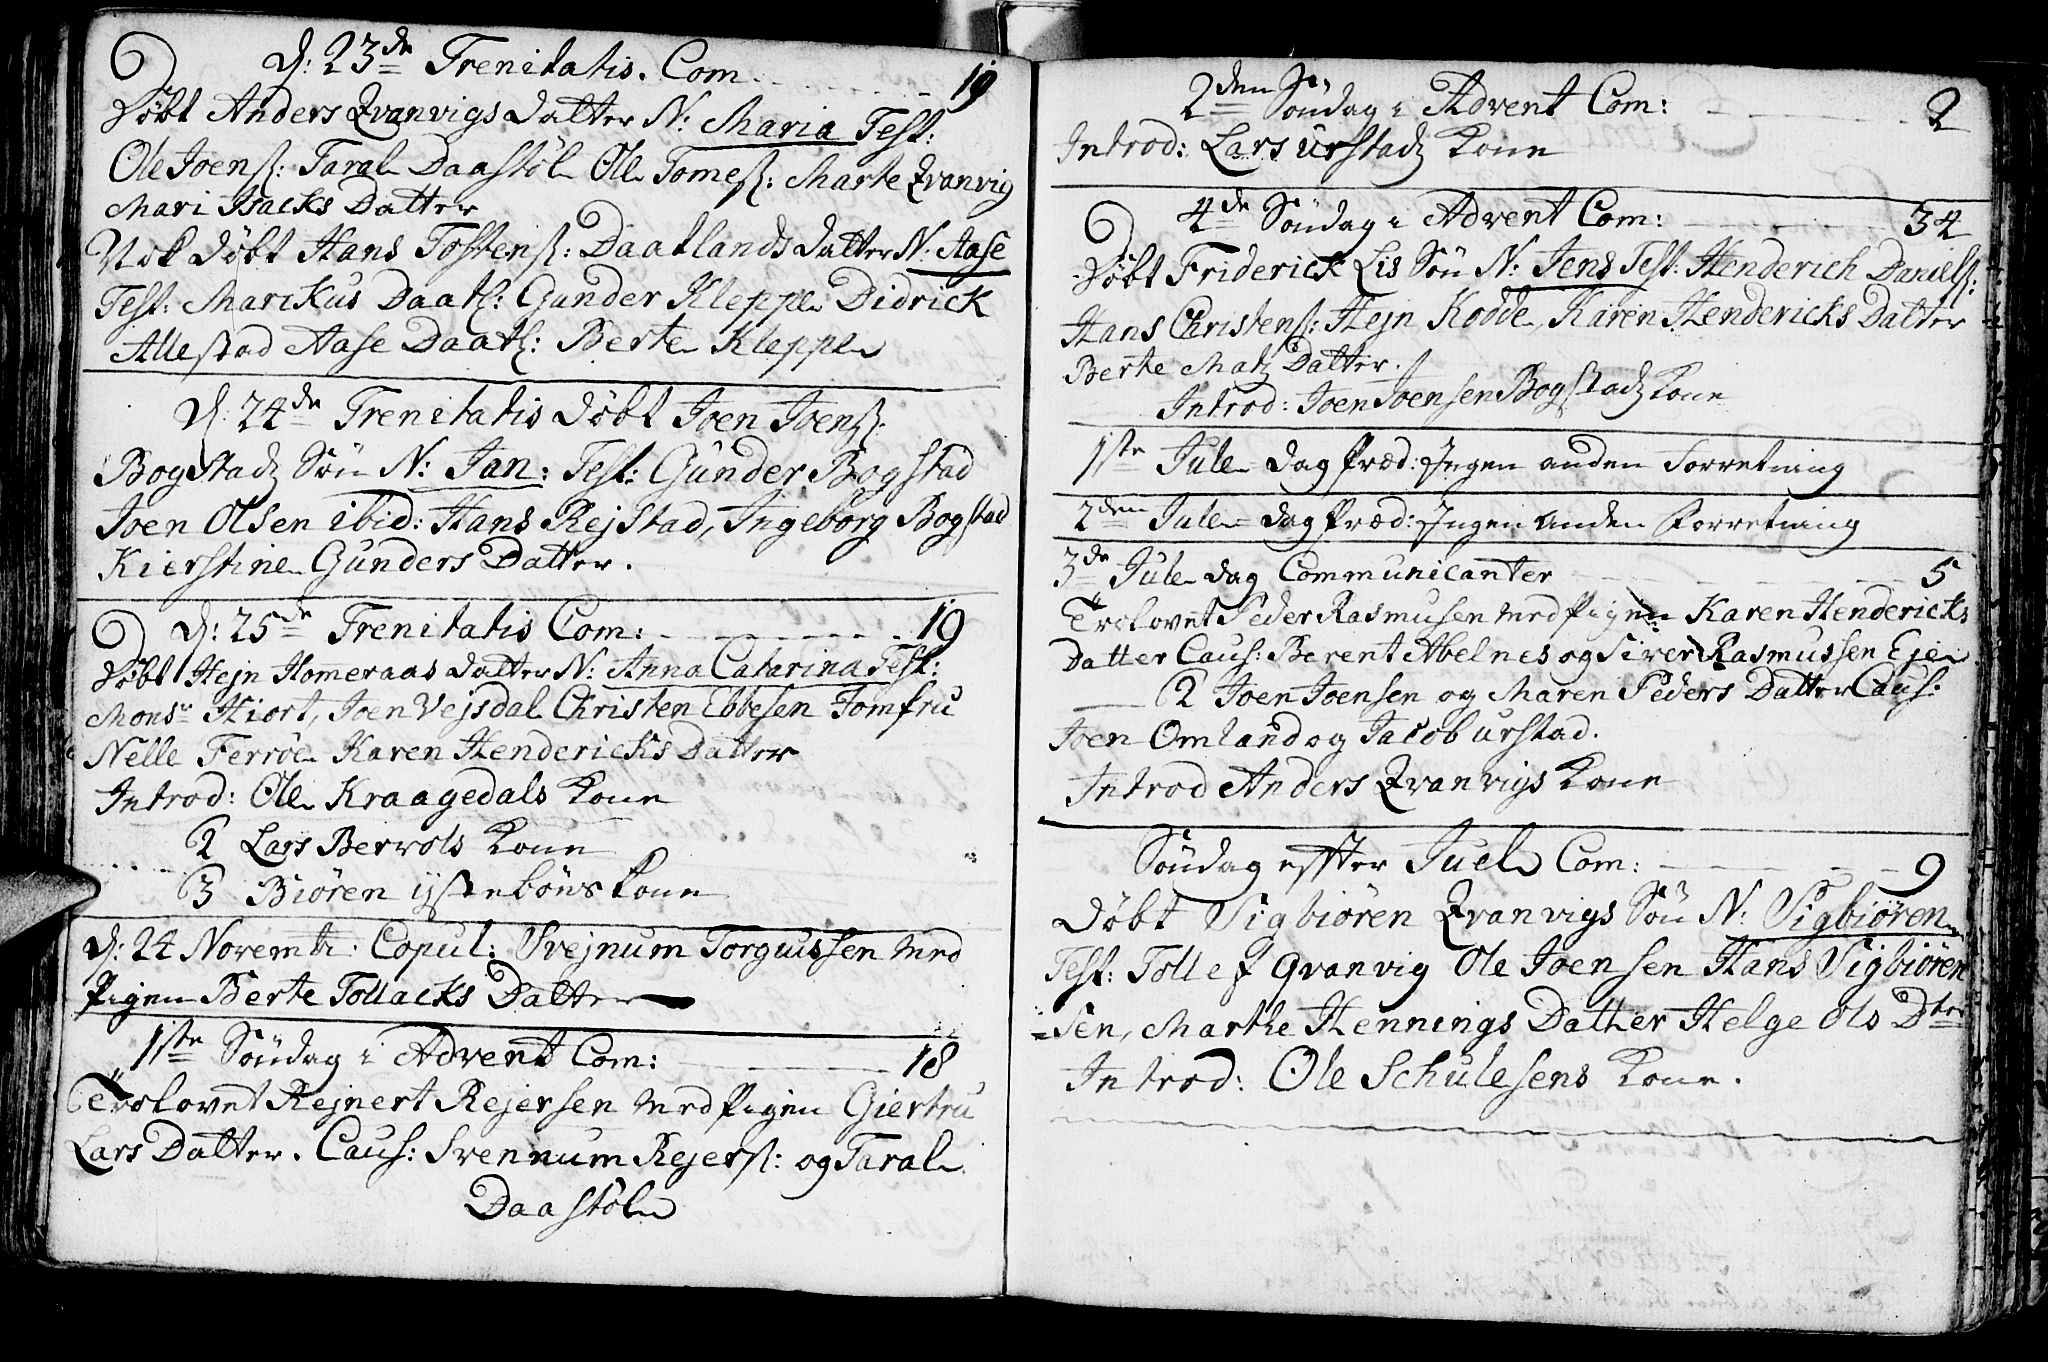 D: 23de Trenitatis. Com - - - 19
Døbt Anders Qvanvigs Datter N: Maria Test:
Ole Joens: Taral Daastøl Ole Tomes: Marte Qvanvig
Mari Isacks Datter
Nok Døbt Hans Tostens: Daatlands Datter N: Aase
Test: Marckus Daatl: Gunder Kleppe Didrick
Allestad Aase Daatl: Berte Kleppe
D: 24de Trenitatis Døbt Joen Joens:
Bogstads Søn N: Jan: Test: Gunder Bogstad
Joen Olsen ibid: Hans Rejstad, Ingeborg Bogstad
Kierstine Gunders Datter.
D: 25de Trenitatis Com: - - - 19
Døbt Hejn Homeraas Datter N: Anna Catarina Test:
Monsr Hiort, Joen Vejsdal Christen Ebbesen Jomfru
Nelle Ferrøe Karen Hendericks Datter
Introd: Ole Kraagedals Kone
2 Lars Bervols Kone
3 Biøren ijstebøns Kone
D: 24 Novemb: Copul: Svejnum Torgussen med
Pigen Berte Tollacks Datter
1ste Søndag i Advent Com: - - - 18
Trolovet Rejnert Rejersen med Pigen Giertru
Lars Datter. Caus: Svennum Rejers: og Taral
Daastøl
2den Søndag i Advent Com: - - - 2
Introd: Lars urstads Kone
4de Søndag i Advent Com: - - - 34
Døbt Friderick Lis Søn N: Jens Test: Henderich Daniels:
Hans Christens: Hejn Kodde, Karen Hendericks Datter
Berte Mats Datter.
Introd: Joen Joensen Bogstads Kone
1ste Jule dag Præd: Ingen anden Forretning
2den Jule dag Præd: Ingen anden Forretning
3de Jule dag Communicanter - - - 5
Trolovet Peder Rasmusen med Pigen Karen Hendericks
Datter Caus: Berent Abelnes og Siver Rasmussen Eje
2 Joen Joensen og Maren Peders Datter Caus:
Joen Omland og Jacob urstad.
Introd Anders Qvanvigs Kone
Søndag effter Juel Com: - - - 9
Døbt Sigbiøren Qvanvigs Søn N: Sigbiøren
Test: Tollef Qvanvig Ole Joensen Hans Sigbiøren
=sen, Marthe Hennings Datter Helge Ols Dter
Introd: Ole Schulesens Kone.